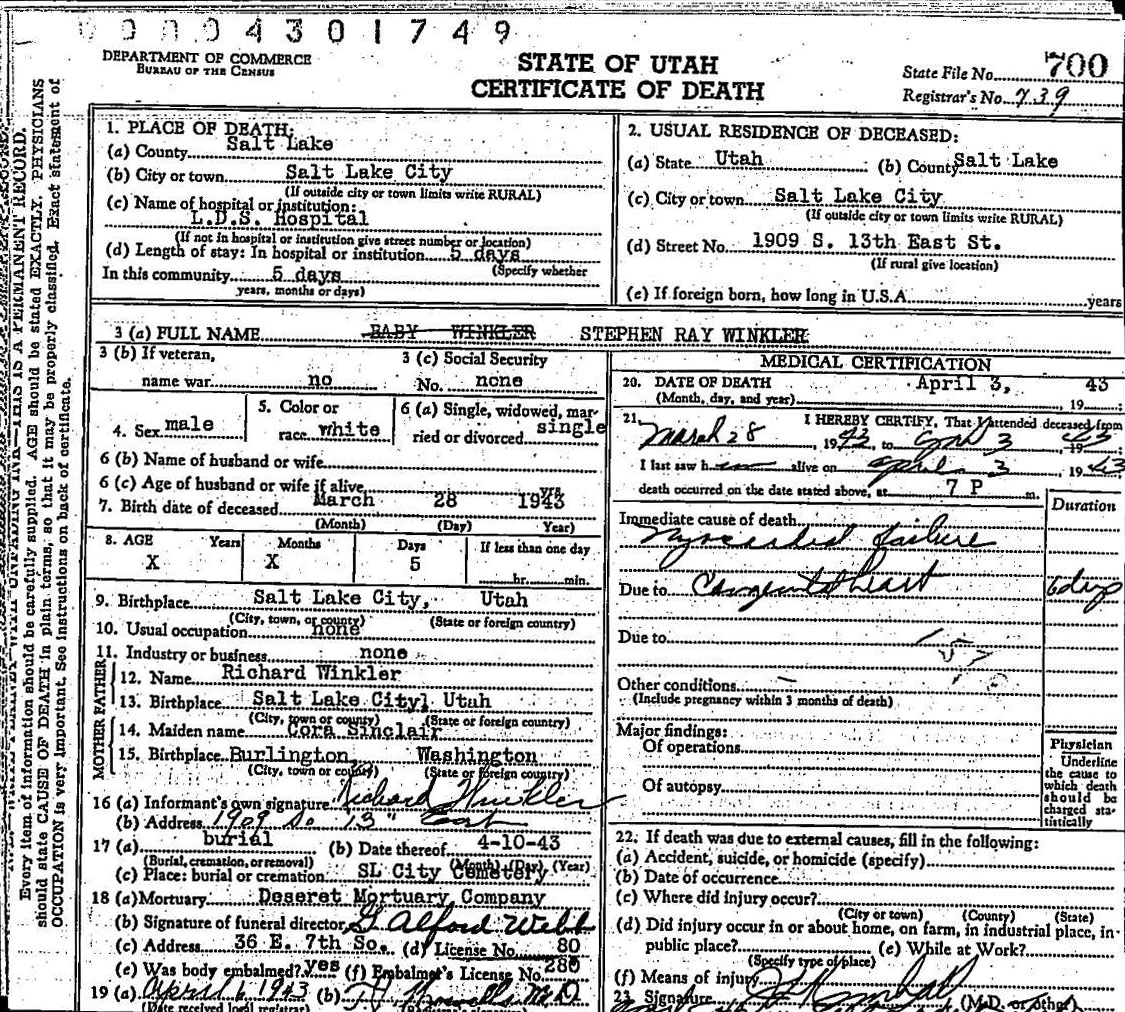 0 0 0 4 3 0 1 7 4 9
DEPARTMENT OF COMMERCE
BUREAU OF THE CENSUS
STATE OF UTAH
CERTIFICATE OF DEATH
State File No. 700
Registrar's No. 739
Every item of information should be carefully supplied. AGE should be stated EXACTLY. PHYSICIANS
should state CAUSE OF DEATH in plain terms, so that it may be properly classified. Exact statement of
OCCUPATION is very important. See instructions on back of certificate.
1. PLACE OF DEATH:
(a) County Salt Lake
(b) City or town Salt Lake City
(If outside city or town limits write RURAL)
(c) Name of hospital or institution:
L.D.S. Hospital
(If not in hospital or institution give street number or location)
(d) Length of stay: In hospital or institution 5 days
(Specify whether
In this community 5 days
years, months or days)
2. USUAL RESIDENCE OF DECEASED:
(a) State Utah (b) County Salt Lake
(c) City or town Salt Lake City
(If outside city or town limits write RURAL)
(d) Street No. 1909 S. 13th East St.
(If rural give location)
(e) If foreign born, how long in U.S.A. years
3 (a) FULL NAME BABY WINKLER STEPHEN RAY WINKLER
3 (b) If veteran, 3 (c) Social Security
name war no No. none
4. Sex male 5. Color or race white 6 (a) Single, widowed, married or divorced single
6 (b) Name of husband or wife
6 (c) Age of husband or wife if alive yrs
7. Birth date of deceased March 28 1943
(Month) (Day) Year)
8. AGE Years Months Days If less than one day
X X 5 hr. min.
9. Birthplace Salt Lake City, Utah
(City, town, or county) (State or foreign country)
10. Usual occupation none
11. Industry or business none
FATHER
12. Name Richard Winkler
13. Birthplace Salt Lake City, Utah
(City, town or county) (State or foreign country)
MOTHER
14. Maiden name Cora Sinclair
15. Birthplace Burlington Washington
(City, town or county) (State or foreign country)
16 (a) Informant's own signature Richard Winkler
(b) Address 1909 So 13" East
17 (a) burial (b) Date thereof 4-10-43
(Burial, cremation, or removal) (Month) (Day) (Year)
(c) Place: burial or cremation SL City Cemetery
18 (a) Mortuary Deseret Mortuary Company
(b) Signature of funeral director G Alford Webb
(c) Address 36 E. 7th So. (d) License No. 80
(e) Was body embalmed? yes (f) Embalmer's License No. 280
19 (a) April 6 1943 (b) M.D.
(Date received local registrar)
MEDICAL CERTIFICATION
20. DATE OF DEATH April 3, 19 43
(Month, day, and year)
21. I HEREBY CERTIFY, That I attended deceased from
March 28, 1943 to 3, 19 43
I last saw h alive on April 3 19 43
death occurred on the date stated above, at 7 P m.
Duration
Immediate cause of death
Myocardial failure
Due to Congenital heart 6 days
Due to
Other conditions
(Include pregnancy within 3 months of death)
Major findings:
Of operations
Of autopsy
Physician
Underline
the cause to
which death
should be
charged sta-
tistically
22. If death was due to external causes, fill in the following:
(a) Accident, suicide, or homicide (specify)
(b) Date of occurrence
(c) Where did injury occur?
(City or town) (County) (State)
(d) Did injury occur in or about home, on farm, in industrial place, in
public place? (e) While at Work?
(Specify type of place)
(f) Means of injury
23. Signature (M.D. or other)